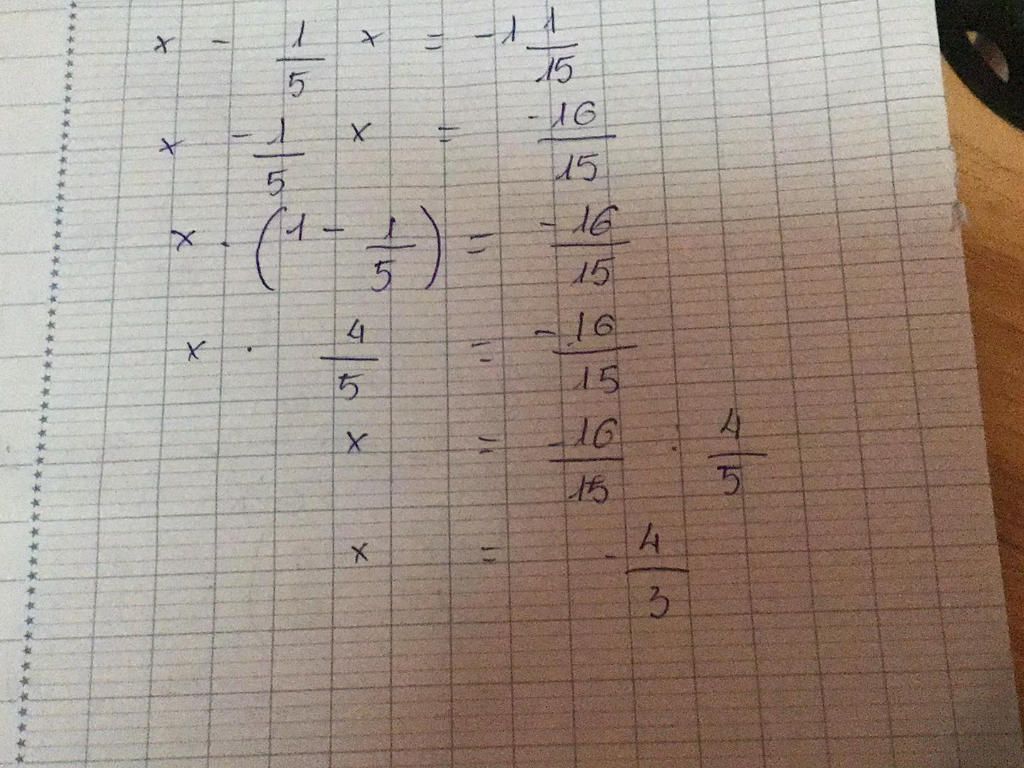 x - 1/5 x = -1 1/15
x - 1/5 x = -16/15
x . (1 - 1/5) = -16/15
x . 4/5 = -16/15
x = -16/15 : 4/5
x = -4/3